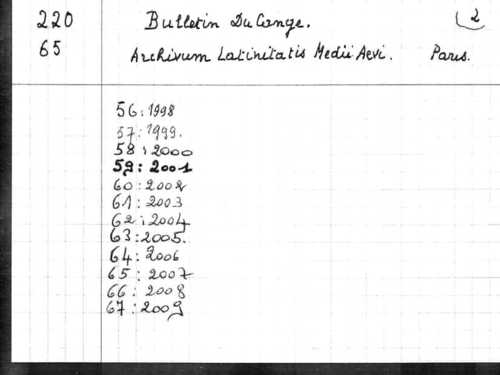 220 Bulletin Du Cange. 2
65 Archivum Latinitatis Medii Aevi. Paris.
56:1998
57:1999.
58:2000
59:2001
60:2002
61:2003
62:2004
63:2005.
64:2006
65:2007
66:2008
67:2009